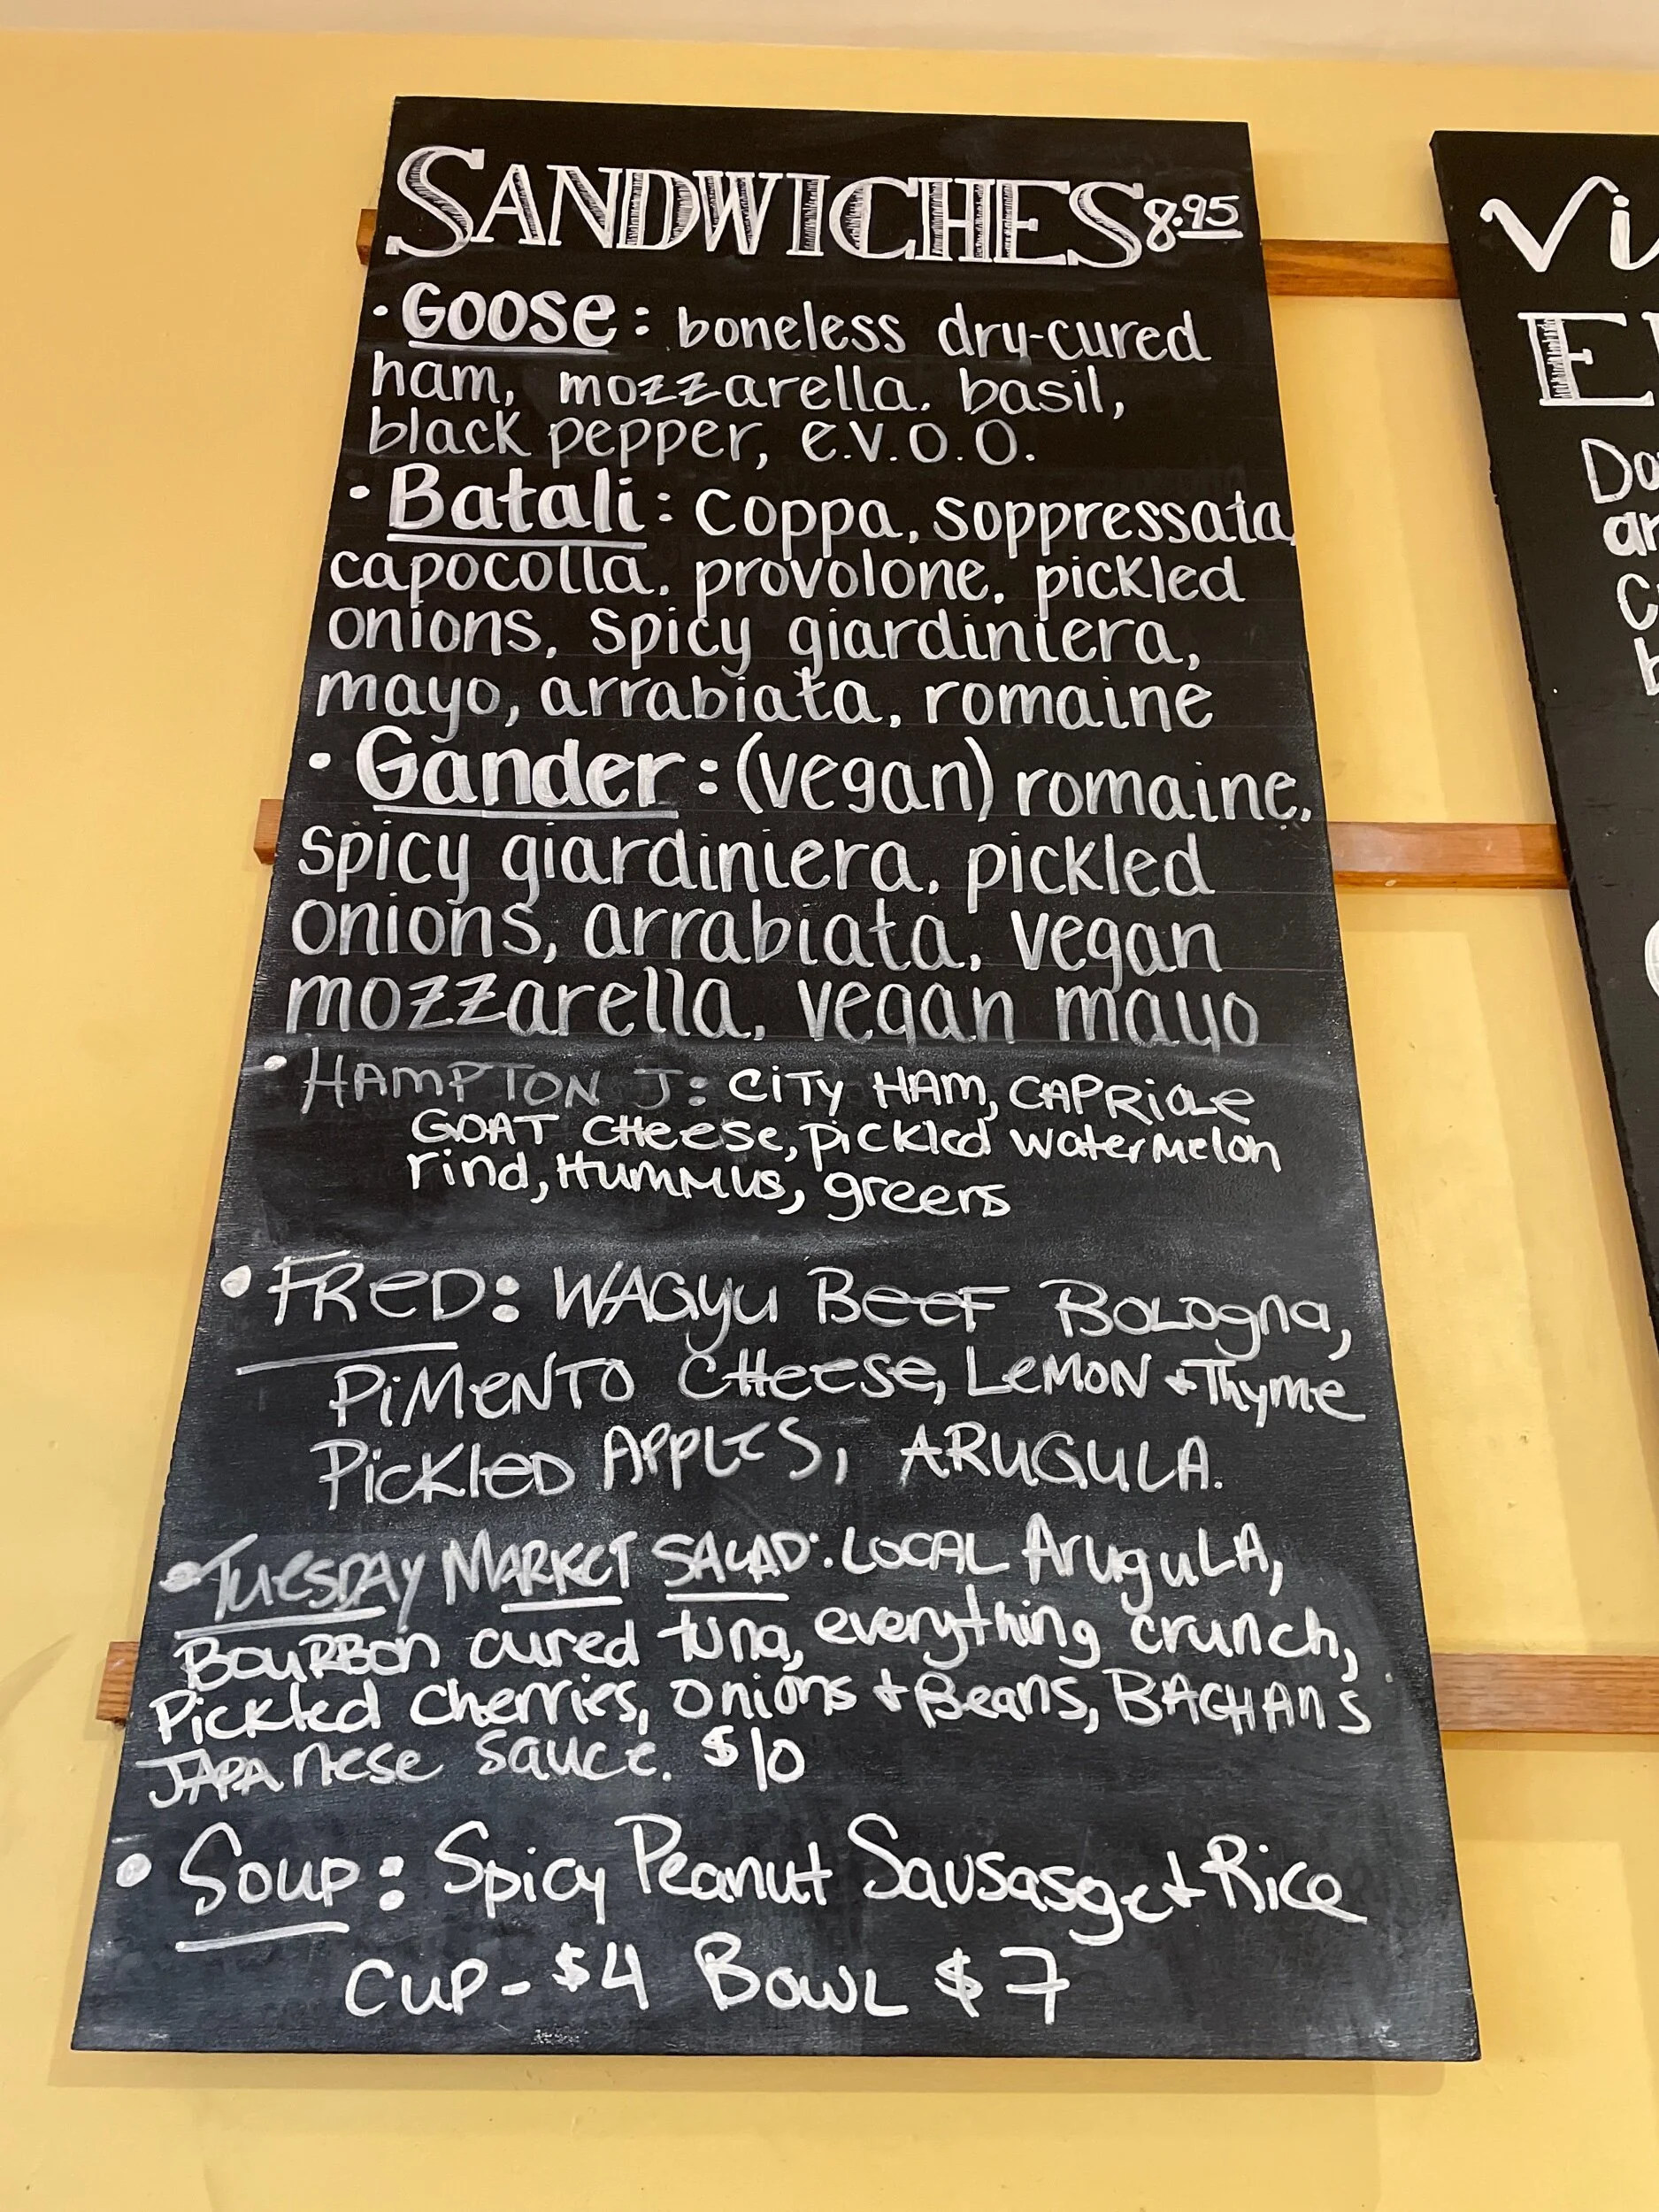 SANDWICHES 8.95
• Goose: boneless dry-cured
ham, mozzarella. basil,
black pepper, e.v.o.o.
• Batali: coppa, soppressata,
capocolla, provolone, pickled
onions, spicy giardiniera,
mayo, arrabiata, romaine
• Gander: (vegan) romaine,
spicy giardiniera, pickled
onions, arrabiata, vegan
mozzarella, vegan mayo
• HAMPTON J: CiTY HAM, CAPRiOLe
GOAT CHeese, pickled watermelon
rind, HuMMus, greens
• FReD: WAGyu BeeF BoLogna,
PiMeNTO CHeese, LeMON + Thyme
PicKleD APPLES, ARUGULA.
• TuesDAy MARKET SALAD: LOCAL AruguLA,
BOuRBon cured tuna, everything crunch,
Pickled cherries, onions + Beans, BACHANS
JAPAnese sauce. $10
• Soup: Spicy Peanut Sausasge + Rice
CUP - $4 BOWL $7
Vi
E
Do
ar
C
b